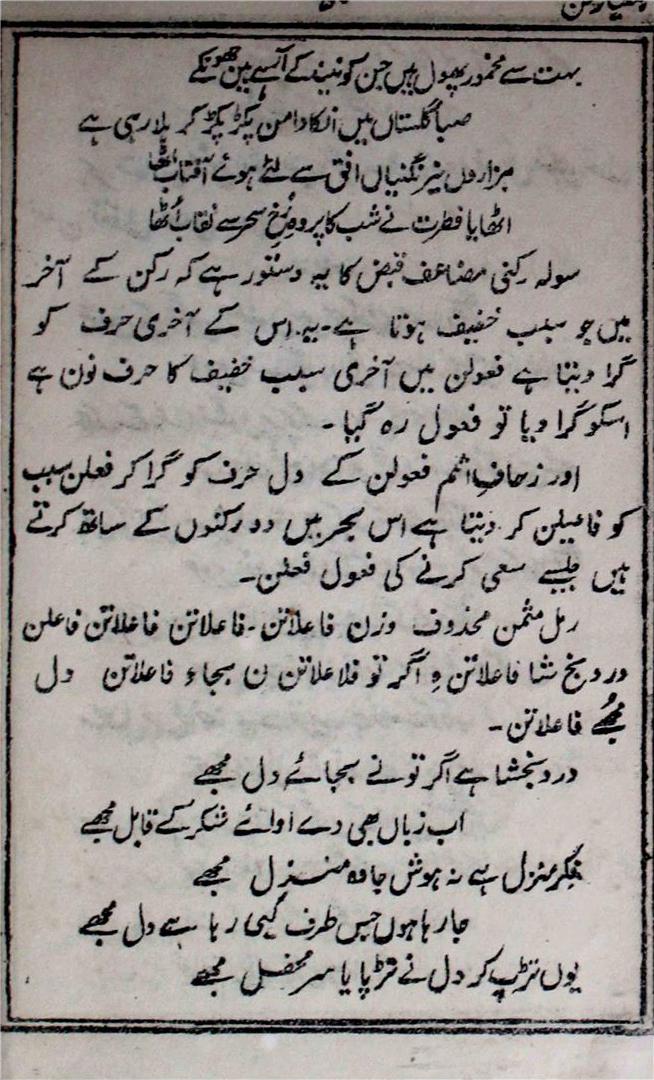 بہت سے مخمور پھول ہیں جن کو نیند کے آسے ہین جھونکے
صبا گلستاں میں انکا دامن پکڑ پکڑ کر ہلا رہی ہے
ہزاروں نیرنگنیاں افق سے لئے ہوئے آفتاب اٹھا
اٹھایا فطرت نے شب کا پردہ رُخ سحر سے نقاب اُٹھا
سولہ رکنی مضاعف قبض کا یہ دستور ہے کہ رکن کے آخر
میں جو سبب خفیف ہوتا ہے۔ یہ اس کے آخری حرف کو
گرا دیتا ہے فعولن میں آخری سبب خفیف کا حرف نون ہے
اسکو گرا دیا تو فعول رہ گیا۔
اور زحاف اثلم فعولن کے دل حرف کو گرا کر فعلن سبب
کو فاعیلن کر دیتا ہے اس بحر میں دو رکنوں کے ساتھ کرتے
ہیں جیسے سعی کرنے کی فعول فعلن۔
رمل مثمن محذوف وزن فاعلاتن۔ فاعلاتن فاعلاتن فاعلن
درد بخ شا فاعلاتن ہِ اگر تو فلاعلاتن ن بجاء فاعلاتن دل
مجھُے فاعلاتن۔
درد بخشا ہے اگر تو نے بجائے دل مجھے
اب زباں بھی دے اوائے شکر کے قابل مجھے
فکر منزل ہے نہ ہوش جادہ منزل مجھے
جا رہا ہوں جس طرف لیجی رہا ہے دل مجھے
یوں تڑپ کر دل نے تڑپایا سر محفل مجھے